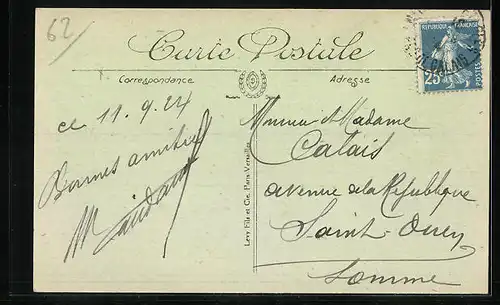 62
Carte Postale
Correspondance
Adresse
RÉPUBLIQUE FRANÇAISE
25
POSTES
CALAIS
ce 11.9.24
Bonnes amitiés
Monsieur et Madame
Calais
avenue de la République
Saint-Ouen
Somme
Levy Fils et Cie, Paris-Versailles